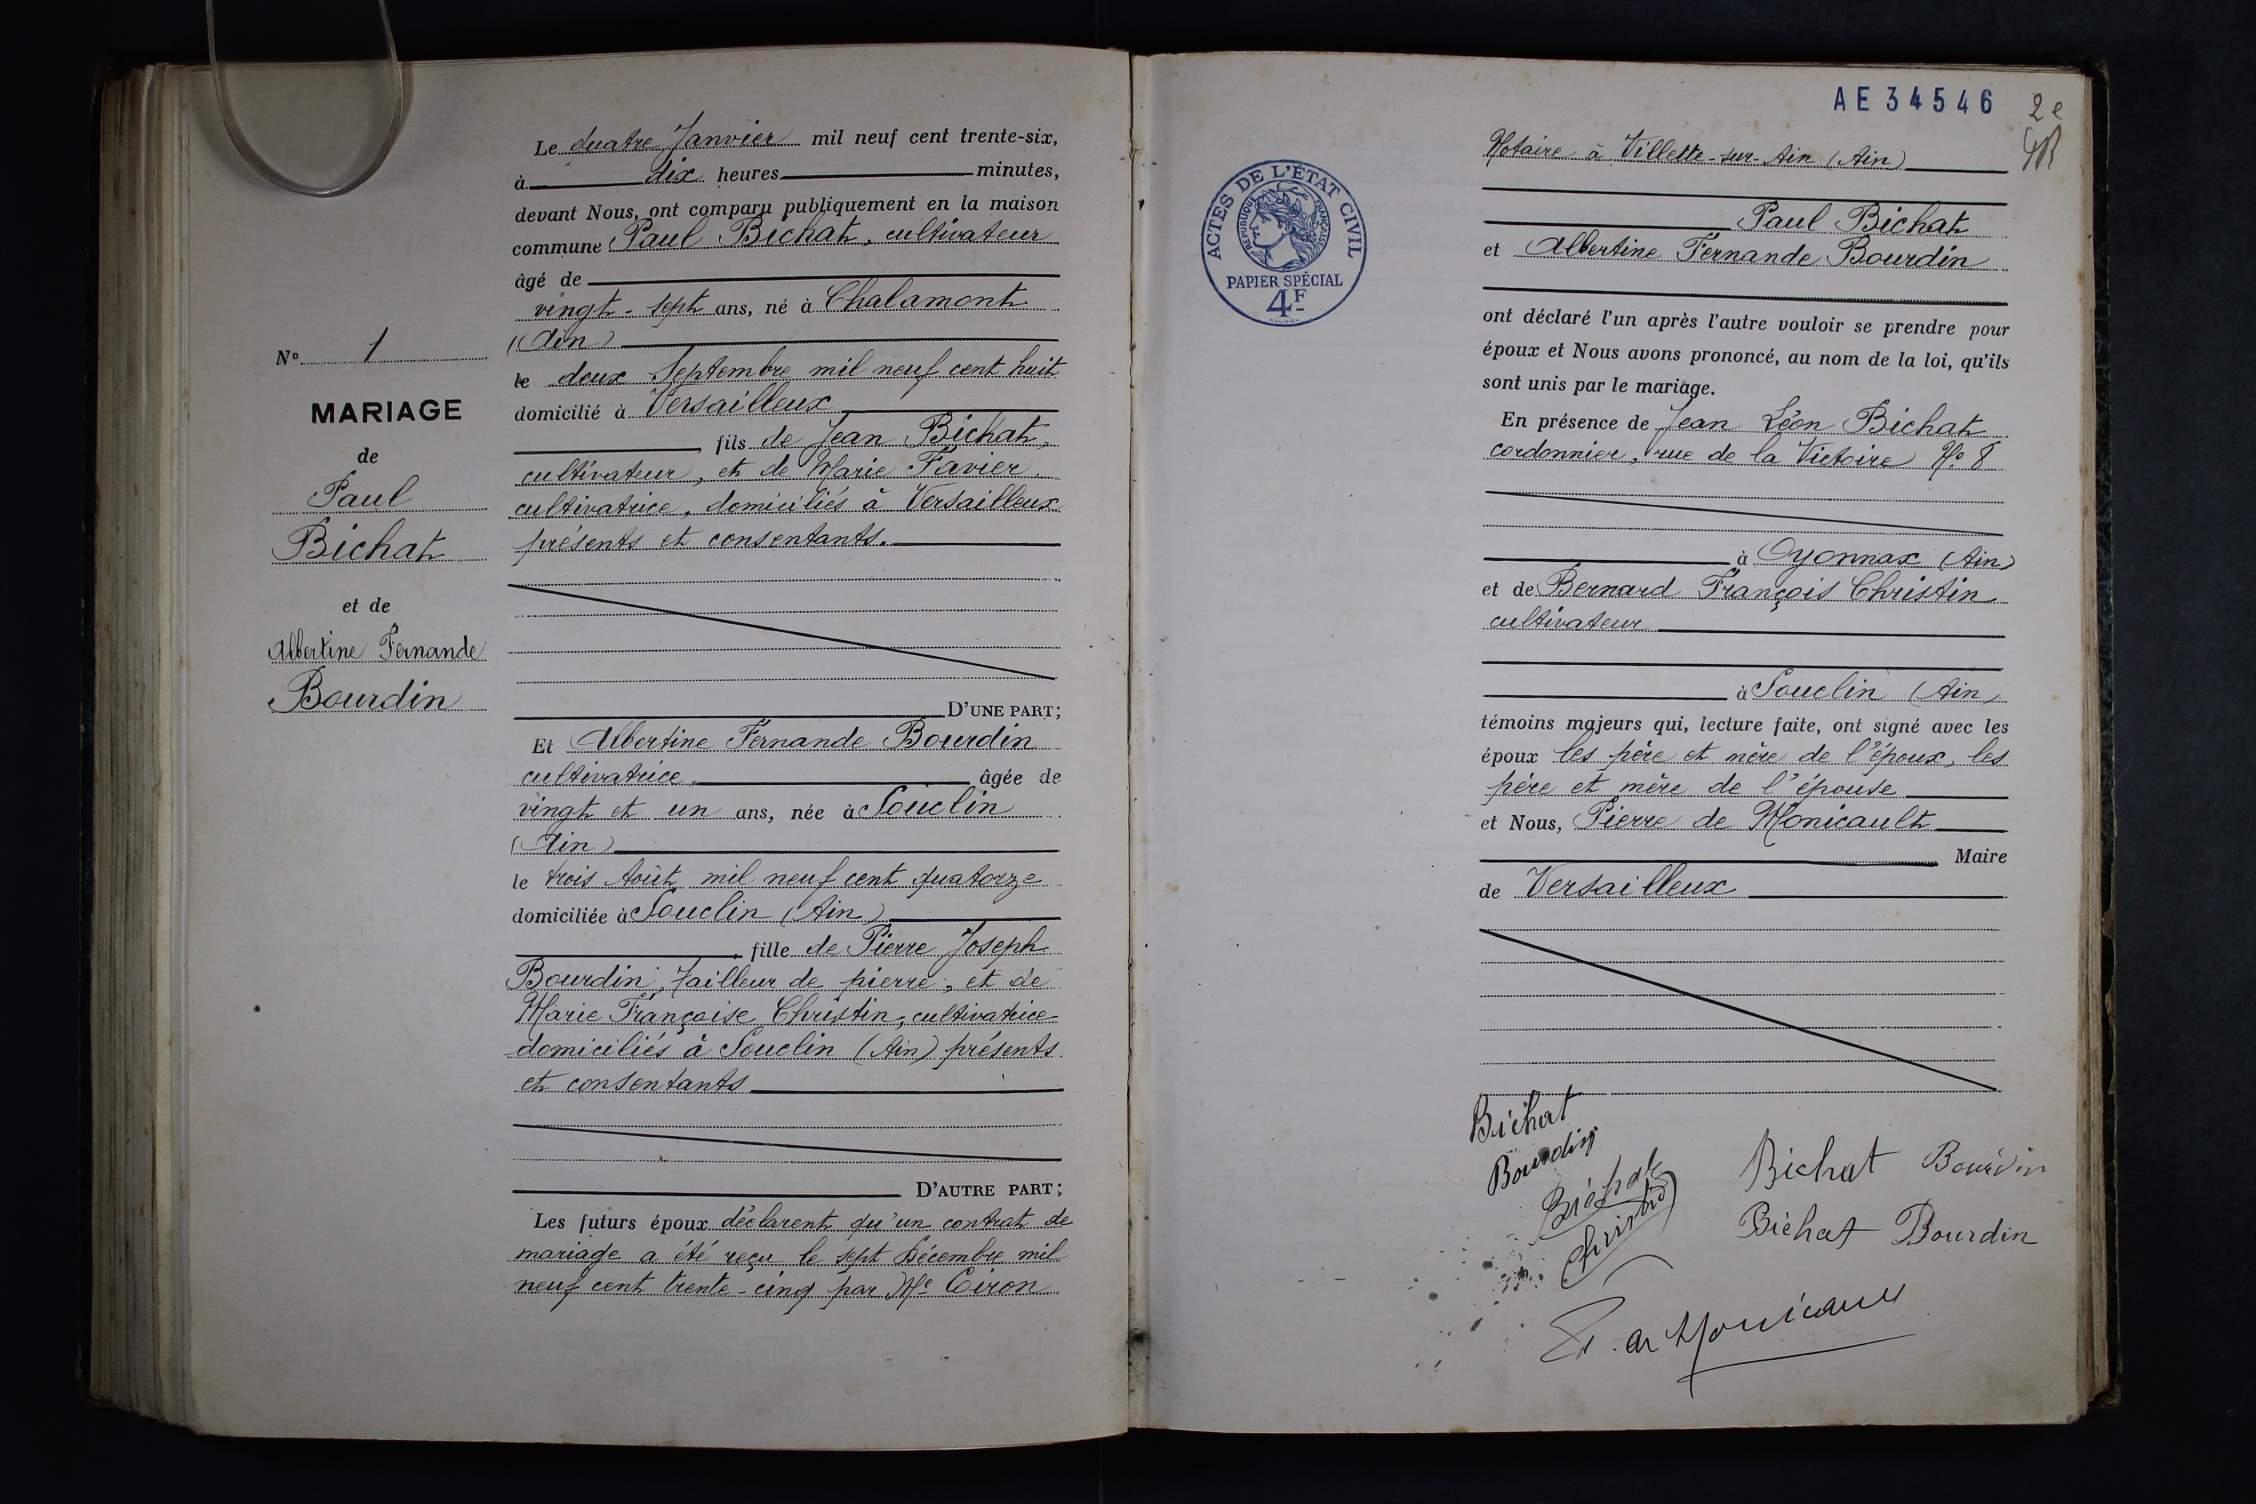 N° 1
MARIAGE
de
Paul
Bichat
et de
Albertine Fernande
Bourdin
Le quatre Janvier mil neuf cent trente-six,
à dix heures minutes,
devant Nous, ont comparu publiquement en la maison
commune Paul Bichat, cultivateur
âgé de
vingt-sept ans, né à Chalamont
(Ain)
le deux Septembre mil neuf cent huit
domicilié à Versailleux
fils de Jean Bichat,
cultivateur, et de Marie Favier
cultivatrice, domiciliés à Versailleux
présents et consentants.
D'UNE PART;
Et Albertine Fernande Bourdin
cultivatrice âgée de
vingt et un ans, née à Souclin
(Ain)
le trois Août mil neuf cent quatorze
domiciliée à Souclin (Ain)
fille de Pierre Joseph
Bourdin, tailleur de pierre, et de
Marie Françoise Christin, cultivatrice
domiciliés à Souclin (Ain) présents
et consentants
D'AUTRE PART;
Les futurs époux déclarent qu'un contrat de
mariage a été reçu le sept Décembre mil
neuf cent trente-cinq par Me Ciron
AE34546
2e
ACTES DE L'ÉTAT CIVIL
RÉPUBLIQUE FRANÇAISE
PAPIER SPÉCIAL
4F
Notaire à Villette-sur-Ain (Ain)
Paul Bichat
et Albertine Fernande Bourdin
ont déclaré l'un après l'autre vouloir se prendre pour
époux et Nous avons prononcé, au nom de la loi, qu'ils
sont unis par le mariage.
En présence de Jean Léon Bichat
cordonnier, rue de la Victoire No 8
à Oyonnax (Ain)
et de Bernard François Christin
cultivateur
à Souclin (Ain)
témoins majeurs qui, lecture faite, ont signé avec les
époux les père et mère de l'époux, les
père et mère de l'épouse
et Nous, Pierre de Monicault
Maire
de Versailleux
Bichat
Bourdin
Bichat
Christin
Bichat Bourdin
Bichat Bourdin
P. de Monicault